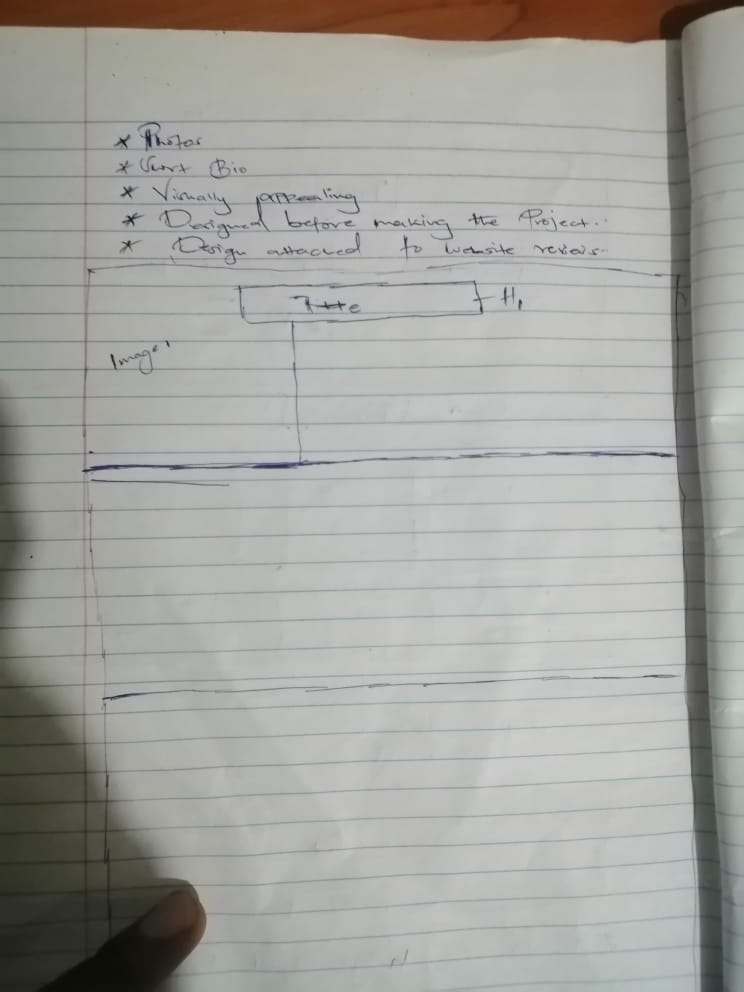 * Photos
* Short Bio
* Visually appealing
* Designed before making the Project..
* Design attached to website reviews..
Title H1
Image